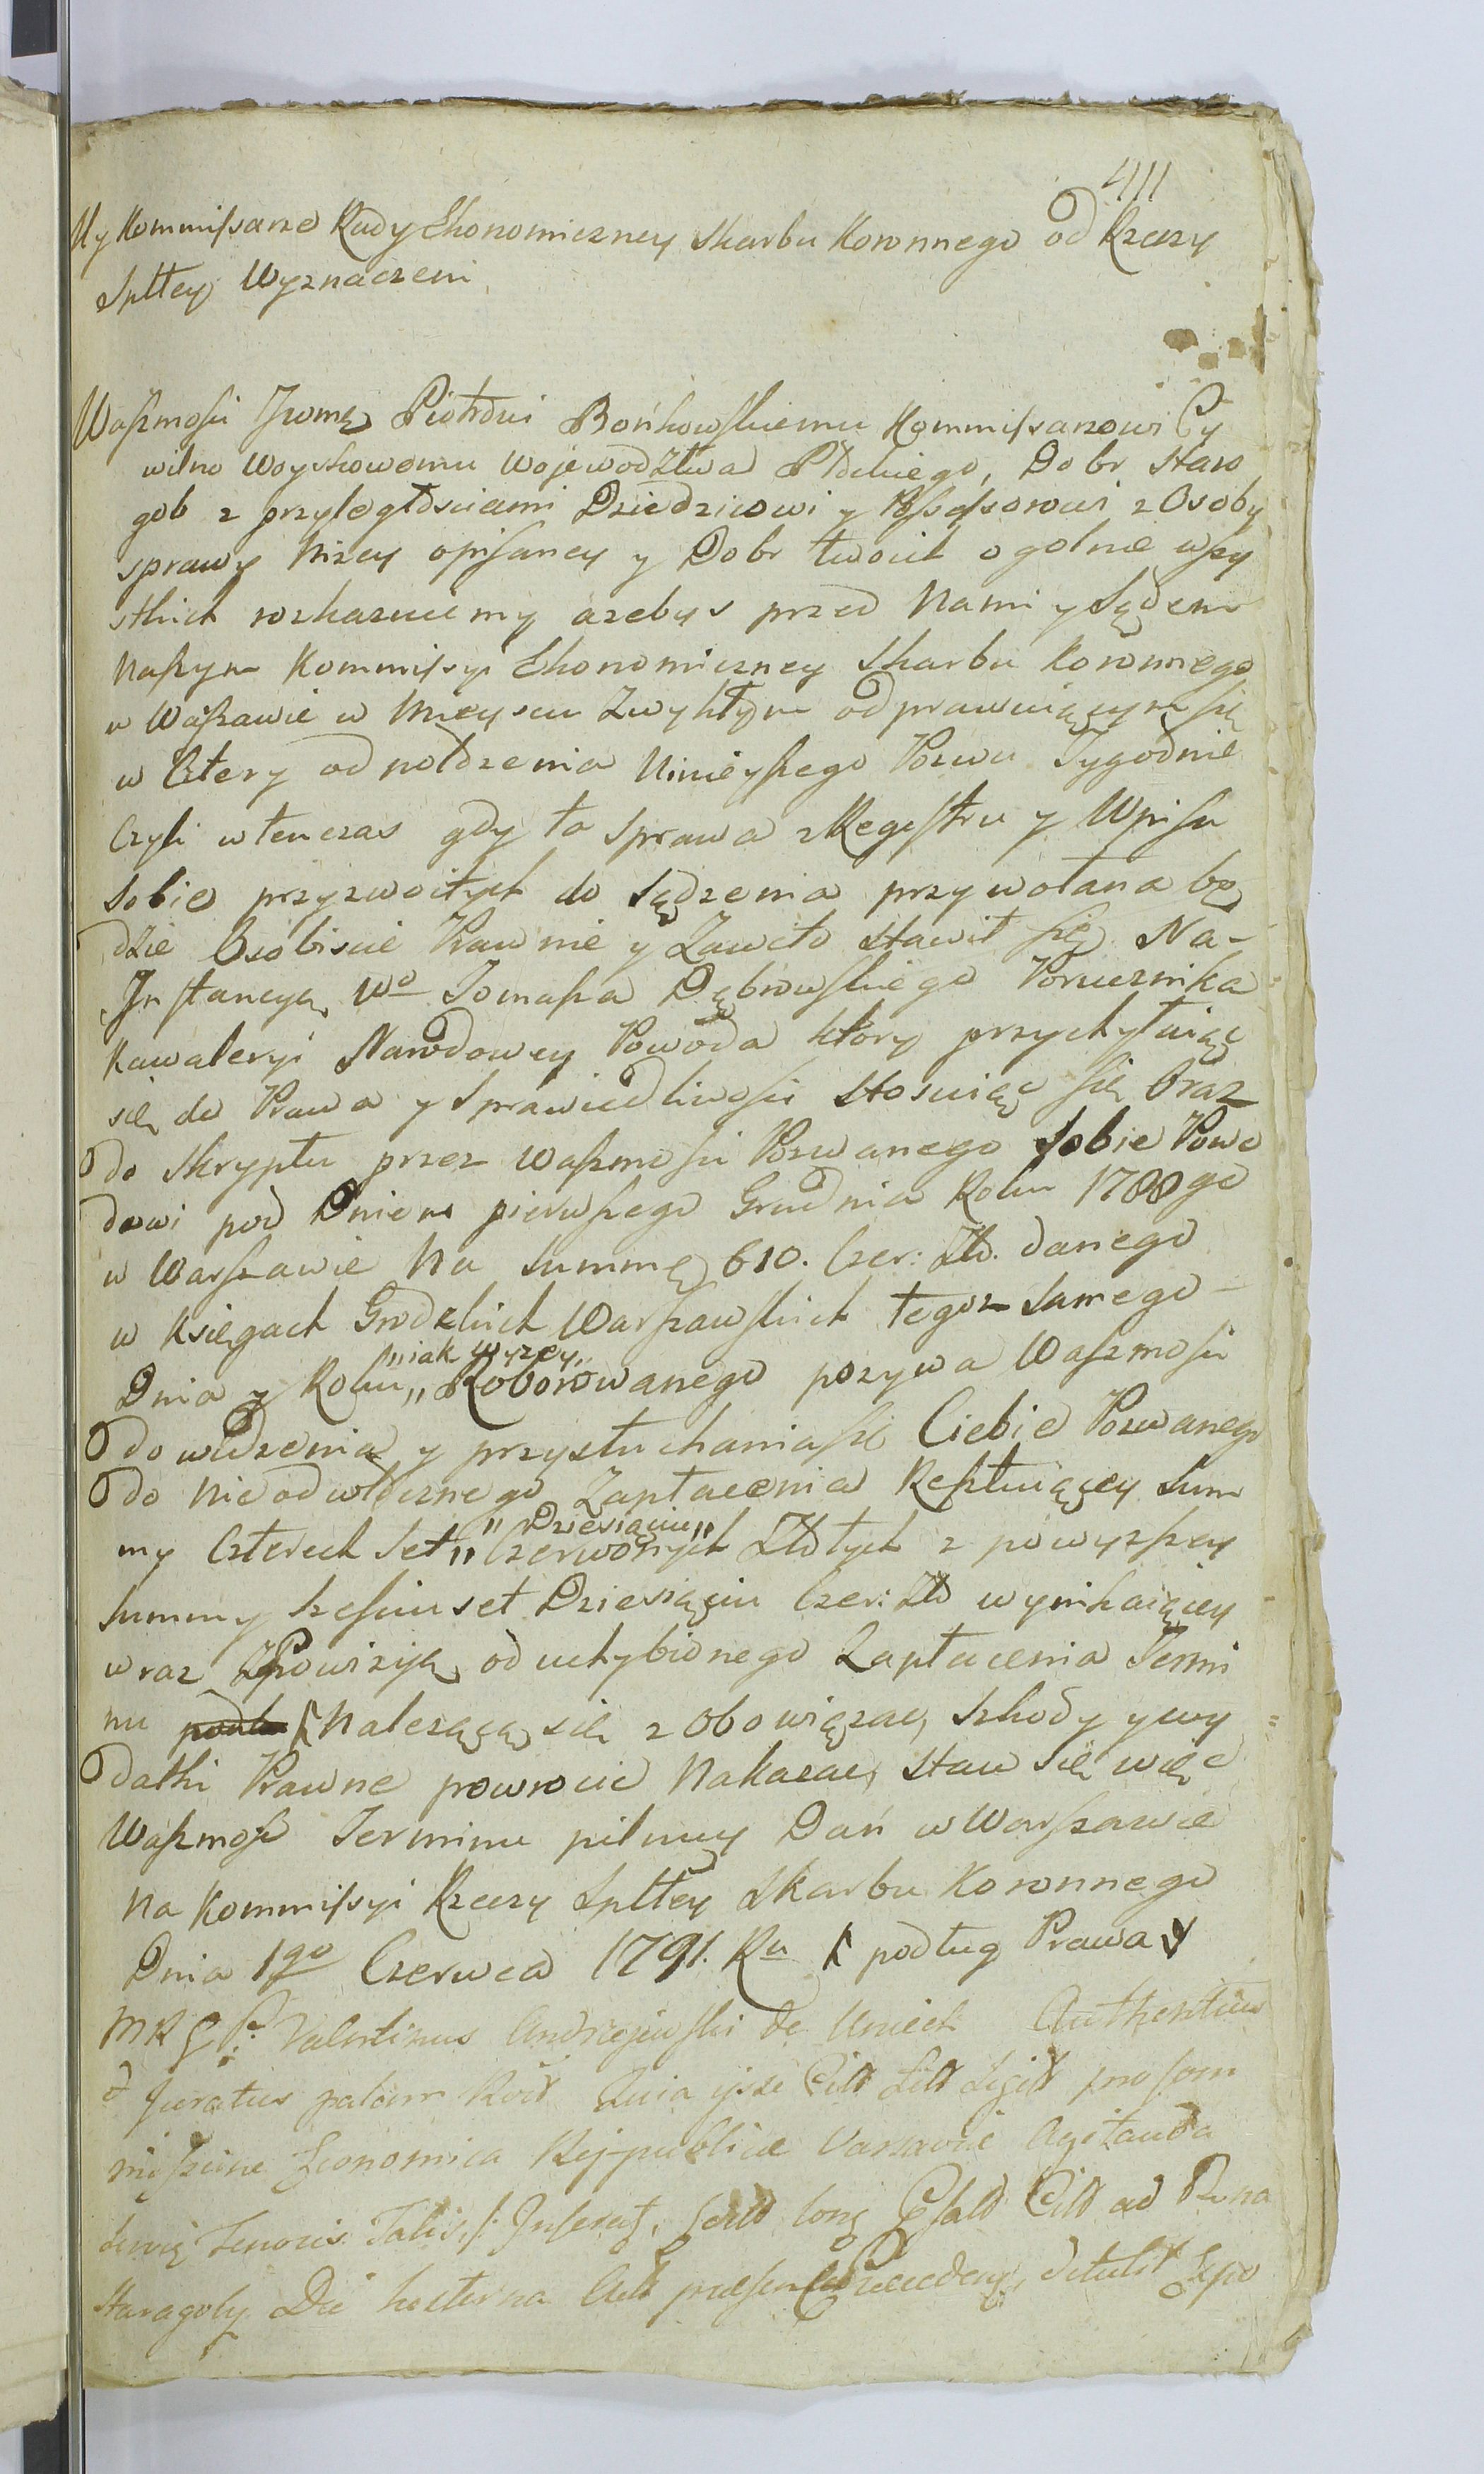 411
My Kommissarze Rady Ekonomiczney Skarbu Koronnego od Rzeczy
Spltey Wyznaczeni
Waszmosci Jmę Piotrowi Bońkowskiemu Kommissarzowi Cy
wilno Woyskowemu Wojewodztwa Płockiego, Dobr Staro
gob z przyległościami Dziedzicowi y Possessorowi z Osoby
sprawy Nizey opisaney y Dobr twoich ogolnie wszy
stkich roskazuiemy azebys przed Nami y Sądem
Naszym Kommissyi Ekonomiczney Skarbu Koronnego
w Warszawie w Mieyscu Zwykłym odprawuiącym się
w Cztery od położenia Ninieyszego Pozwu Tygodnie
Czyli w tenczas gdy ta Sprawa z Regestru y Wpisu
Sobie przyzwoitych do Sądzenia przywołana bę
dzie Osobiscie Prawnie y Zawito Stawił się Na-
Instancyą Wo Tomasza Dąbrowskiego Porucznika
Kawaleryi Narodowey Powoda ktory przychylaiąc
się do Prawa y Sprawiedliwosci Stosuiąc się Oraz
do Skryptu przez Waszmosci Pozwanego Sobie Powo
dowi pod Dniem pierwszego Grudnia Roku 1788go
w Warszawie Na Summę 610. Czer: Zło. danego
w Księgach Grodzkich Warszawskich tegoz Samego -
Dnia y Roku „ iak wyzey „ Roborowanego pozywa Waszmosci
do widzenia y przysłuchania się Ciebie Pozwanego
do Nieodwłocznego Zapłacenia Resztuiącey Sum
my Czterech Set „ Dziesiąciu „ Czerwonych Złotych z powyzszey
Summy Szesciuset Dziesiąciu Czer: Zło wynikaiącey
wraz z Prowizyą od uchybionego Zapłacenia Termi
nu Nalezącą się zobowiązac, Szkody y wy
datki Prawne powrocic Nakazac, Staw się więc
Waszmosc Terminu pilnuy Dań w Warszawie
Na Kommissyi Rzeczy Spltey Skarbu Koronnego
Dnia 1go Czerwca 1791. Ru podług Prawa
MRG P: Valentinus Andrzejewski de Unieck Authenticus
et Juratus palam Quia ipse pro Com
missione Economica Reipublicae Varsaviae Agitanda
Tenoris Talis /: ad Bona
Staragoby Die hesterna detulit